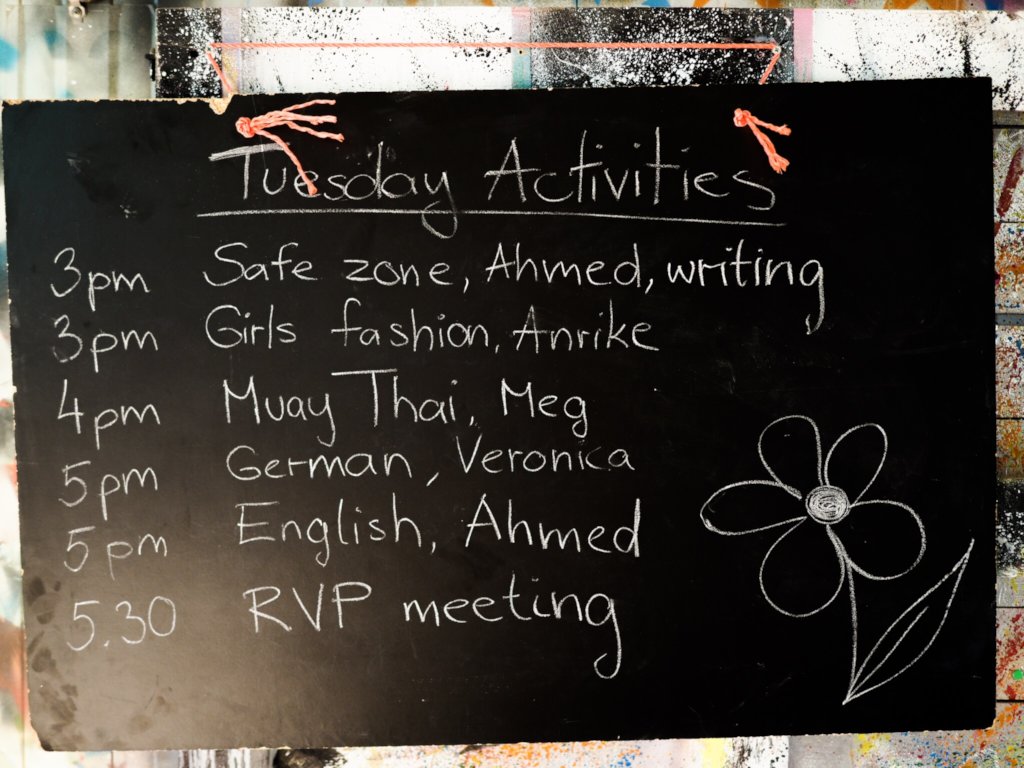 Tuesday Activities
3pm Safe zone, Ahmed, writing
3pm Girls fashion, Anrike
4pm Muay Thai, Meg
5pm German, Veronica
5pm English, Ahmed
5.30 RVP meeting